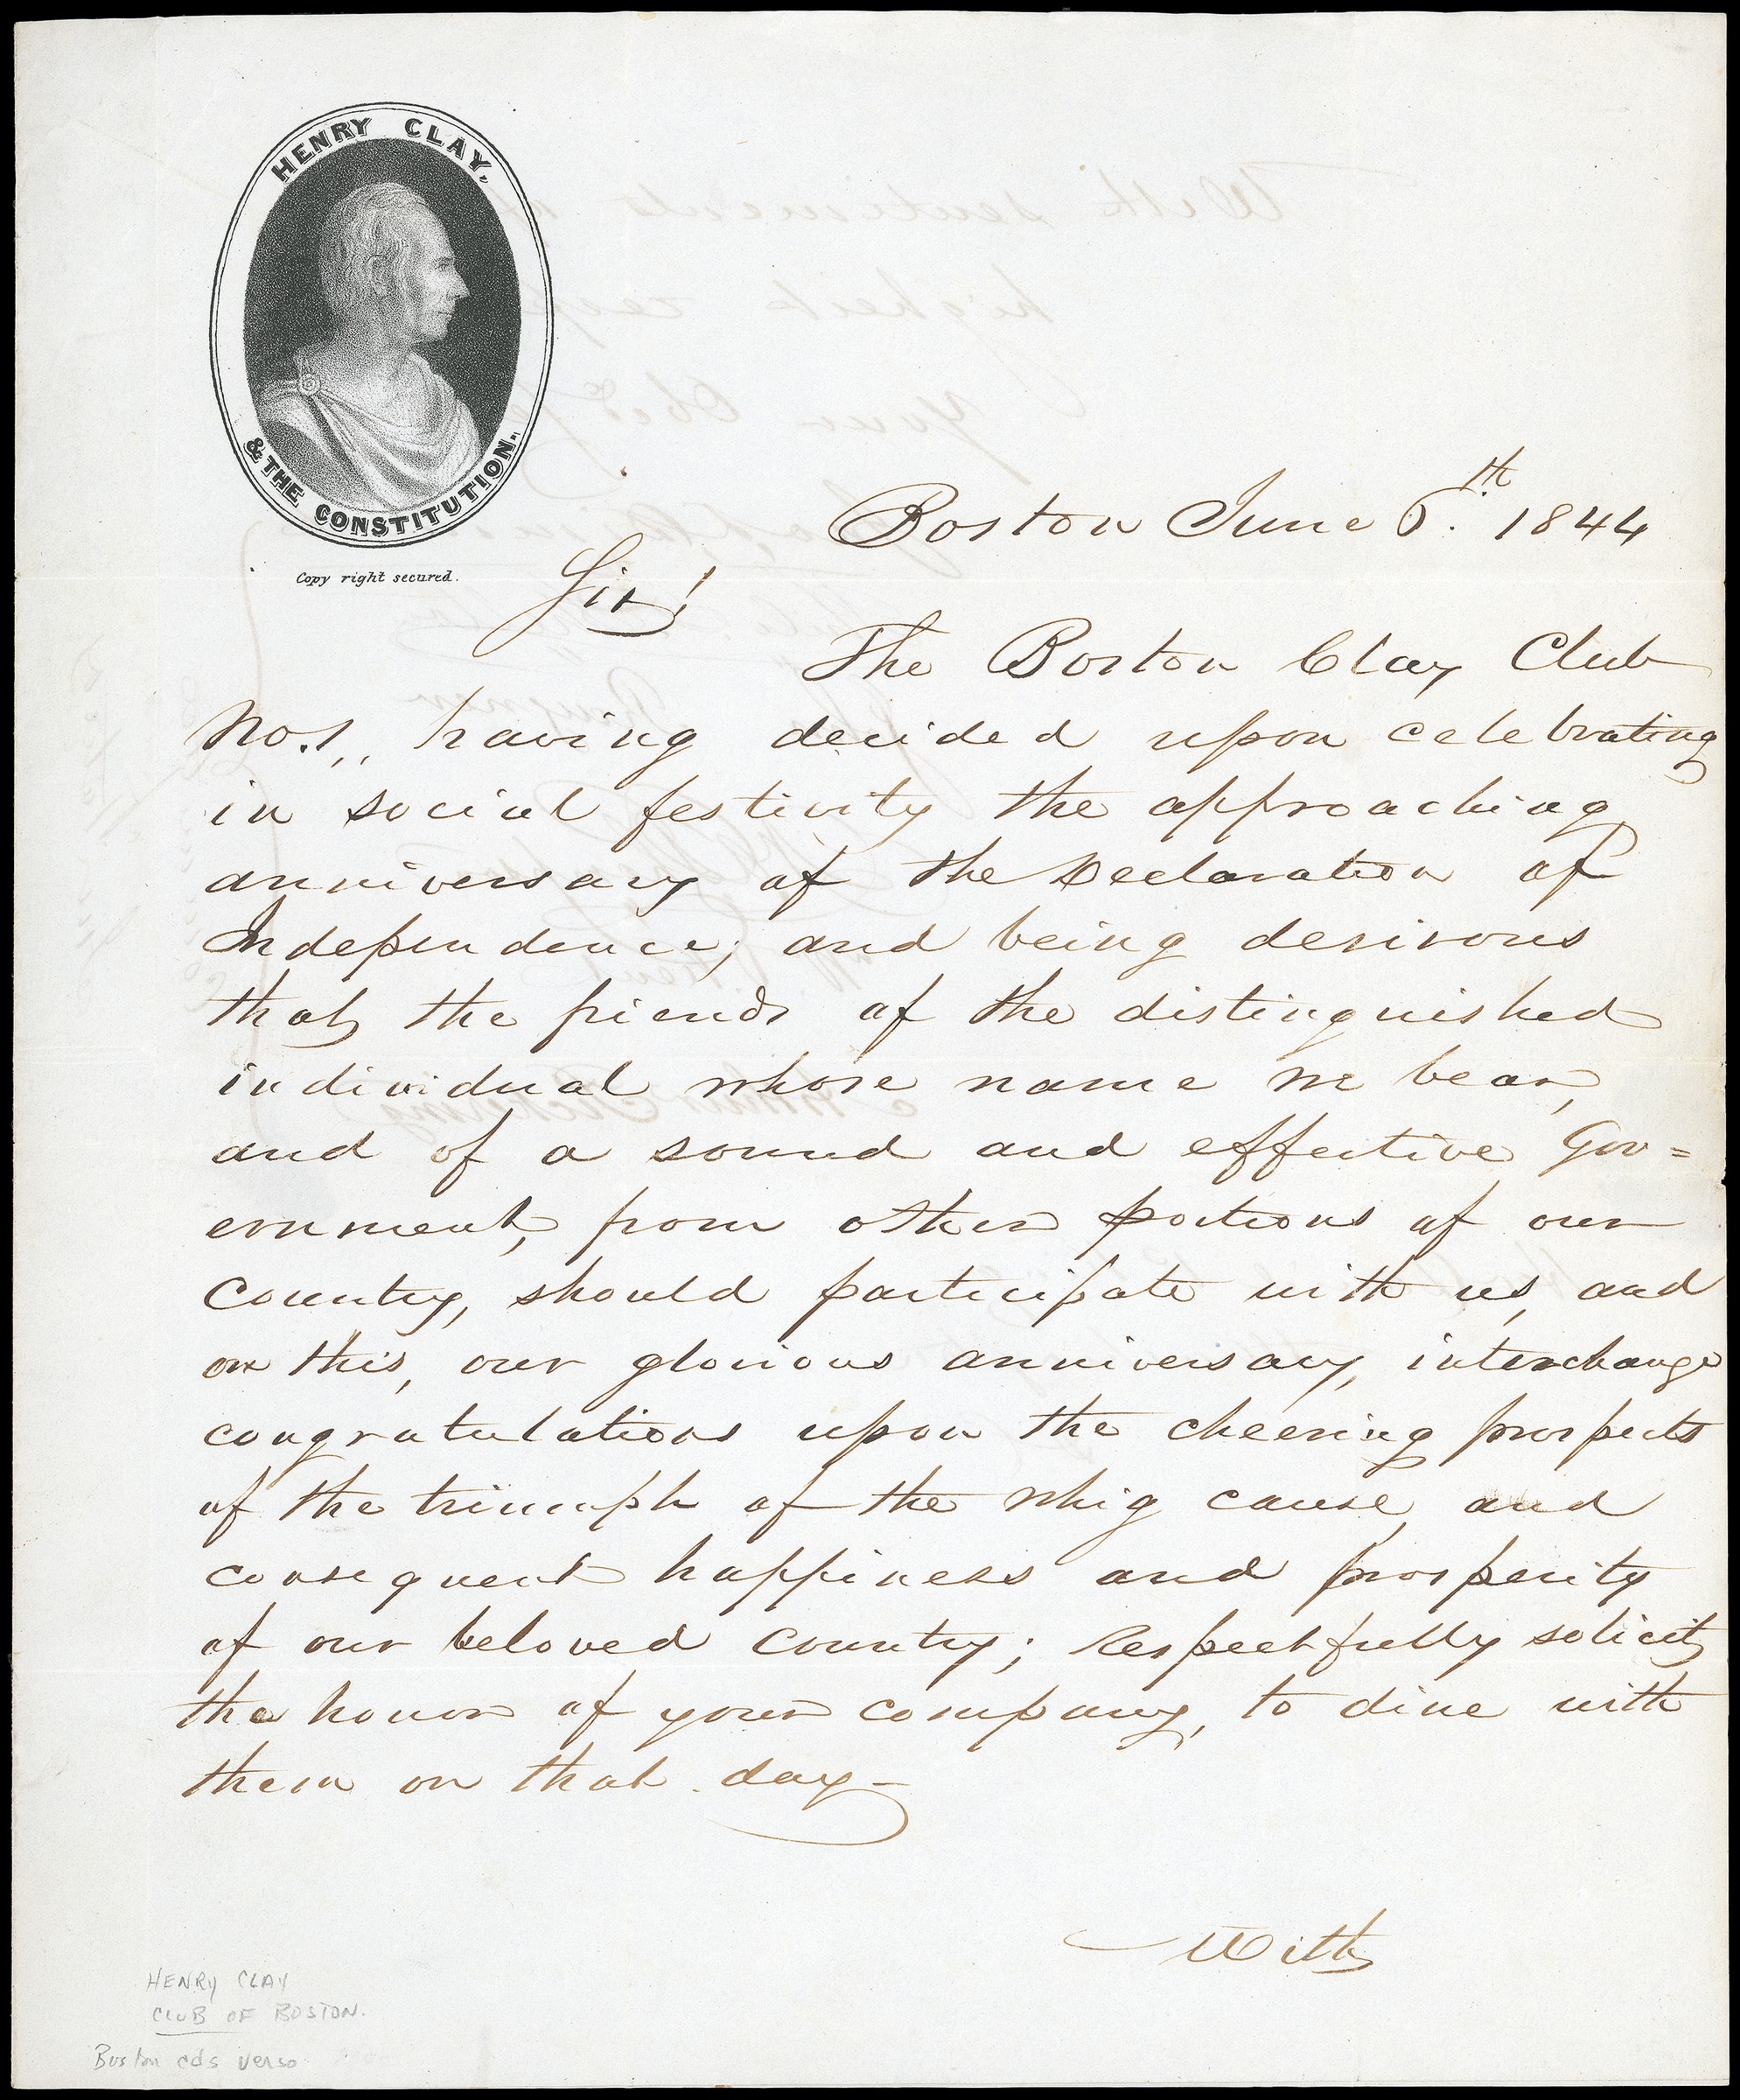 HENRY CLAY,
& THE CONSTITUTION.
Copy right secured.
Boston June 6.th 1844
Sir!
The Boston Clay Club
No. 1,, having decided upon celebrating
in social festivity the approaching
anniversary of the Declaration of
Independence; and being desirous
that the friends of the distinguished
individual whose name we bear,
and of a sound and effective Gov=
ernment, from other portions of our
Country, should participate with us, and
on this, our glorious anniversary, interchange
congratulations upon the cheering prospects
of the triumph of the Whig cause, and
consequent happiness and prosperity
of our beloved country; Respectfully solicit
the honor of your company, to dine with
them on that day—
With
HENRY CLAY
CLUB OF BOSTON.
Boston cds verso
With sentiments of
highest resp
Your Obed